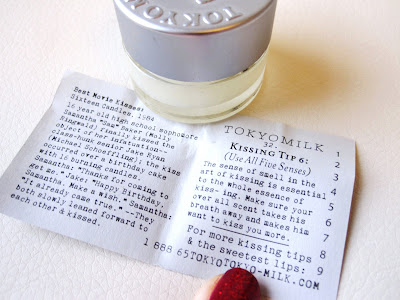 TOKYOM
TOKYOMILK
Best Movie Kisses:
Sixteen Candles, 1984
16 year old high school sophomore
Samantha "Sam" Baker (Molly
Ringwald) finally kissed the
object of her infatuation-
class-hunk senior Jake Ryan
(Michael Schoeffling); the kiss
occurred over a birthday cake
with 16 burning candles.
Samantha: "Thanks for coming to
get me." Jake: "Happy Birthday,
Samantha. Make a wish." Samantha:
"It already came true." --They
both slowly leaned forward to
each other & kissed.
TOKYOMILK
32.
KISSING TIP 6:
(Use All Five Senses)
The sense of smell in the
art of kissing is essential
to the whole essence of
kiss- ing. Make sure your
over all scent takes his
breath away and makes him
want to kiss you more.
For more kissing tips
& the sweetest lips:
1 888 65TOKYOTOKYO-MILK.COM
1
2
3
4
5
6
7
8
9